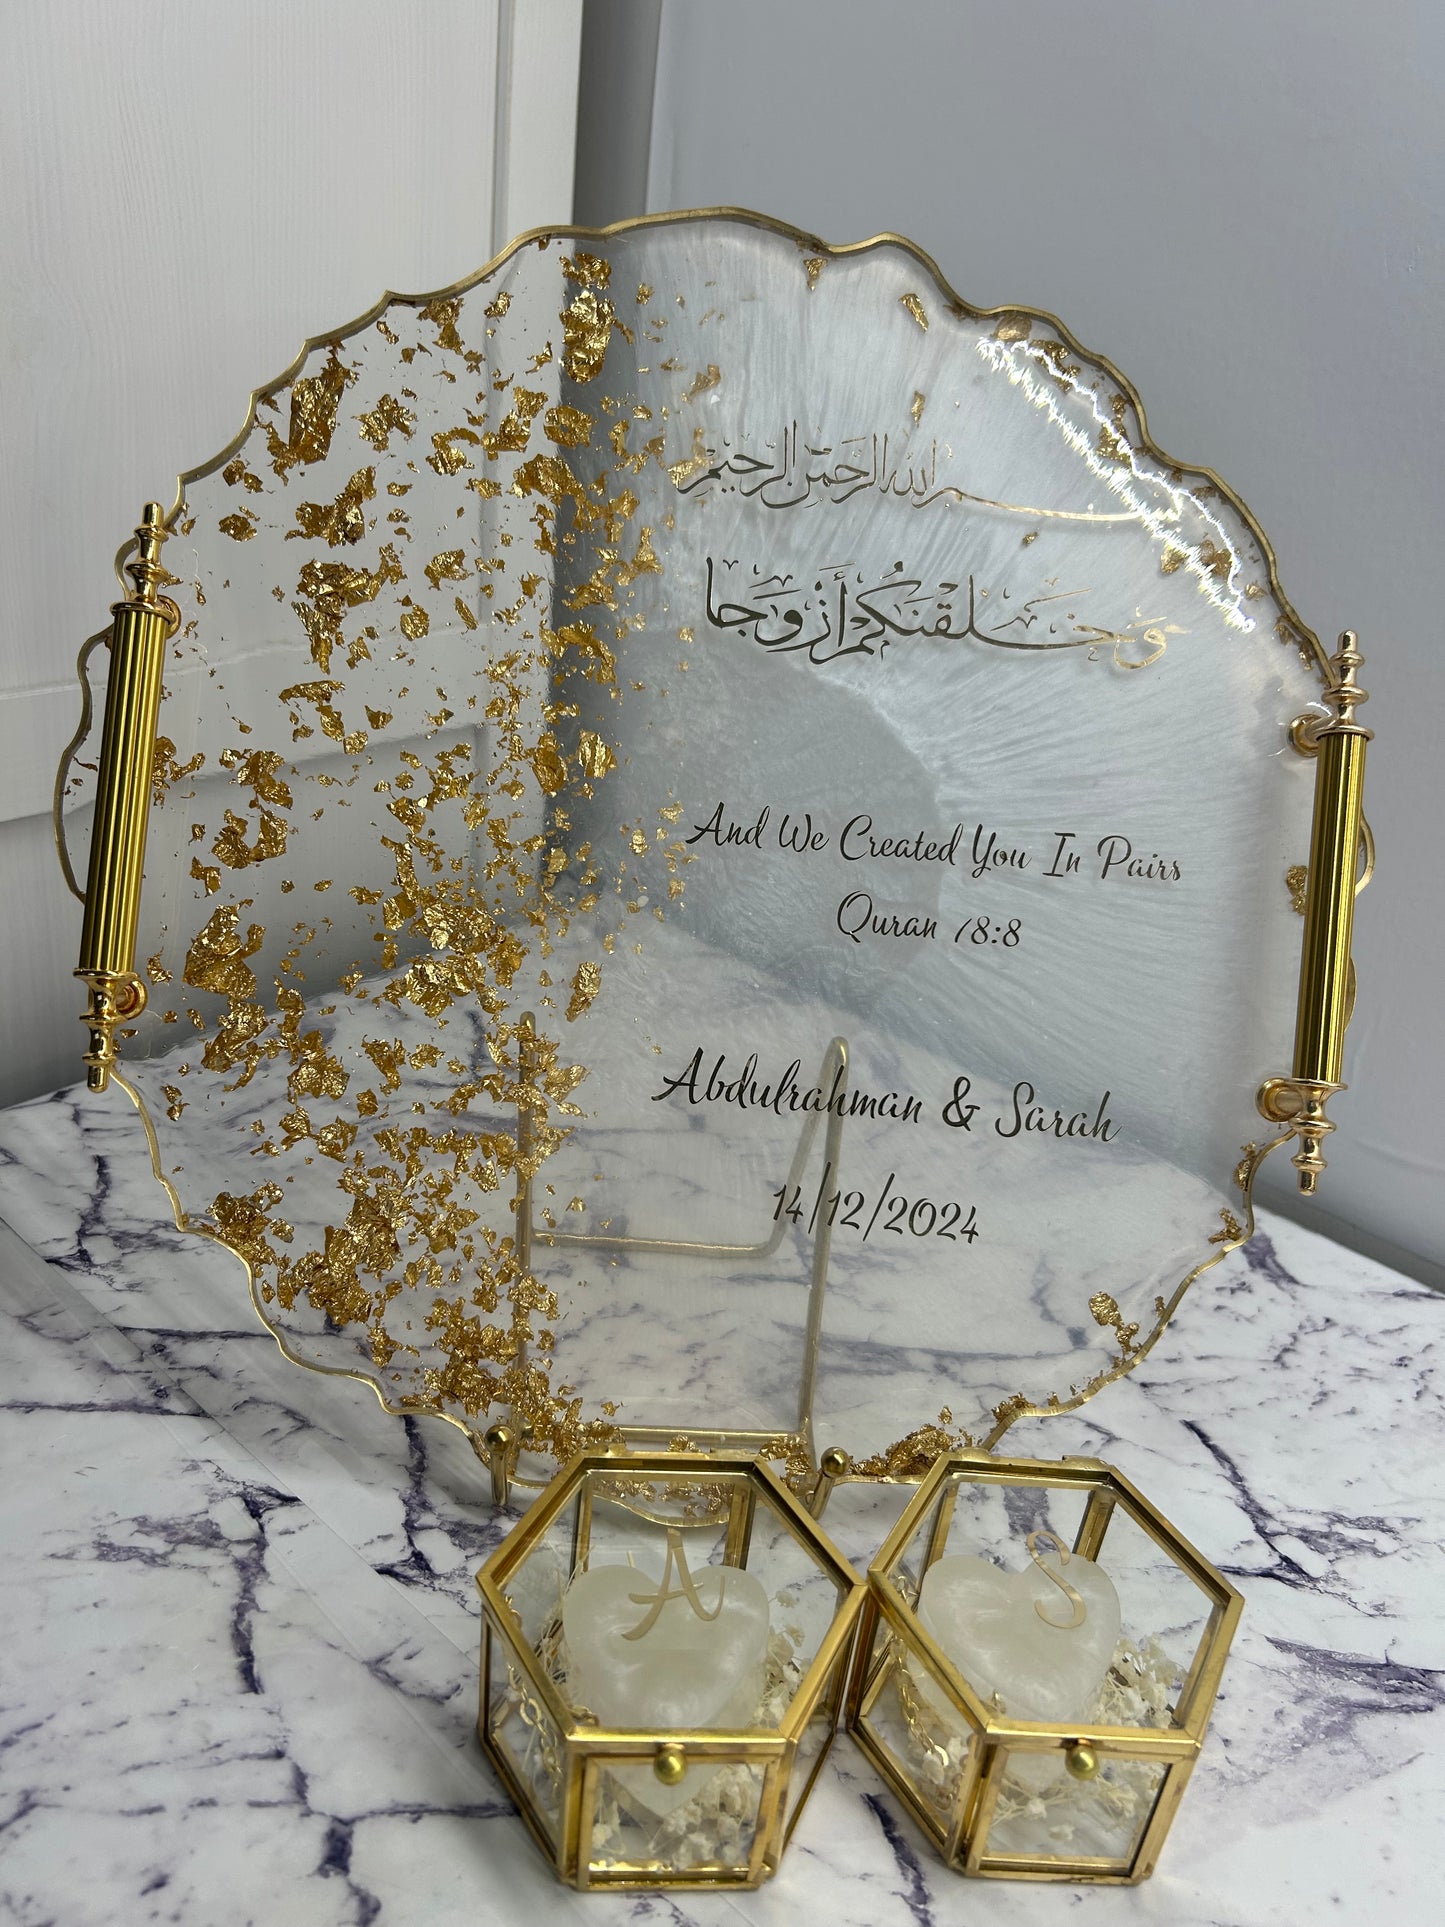 بسم الله الرحمن الرحيم
وَخَلَقْنَكُمْ أَزْوَجًا
And We Created You In Pairs
Quran 78:8
Abdulrahman & Sarah
14/12/2024
A
S